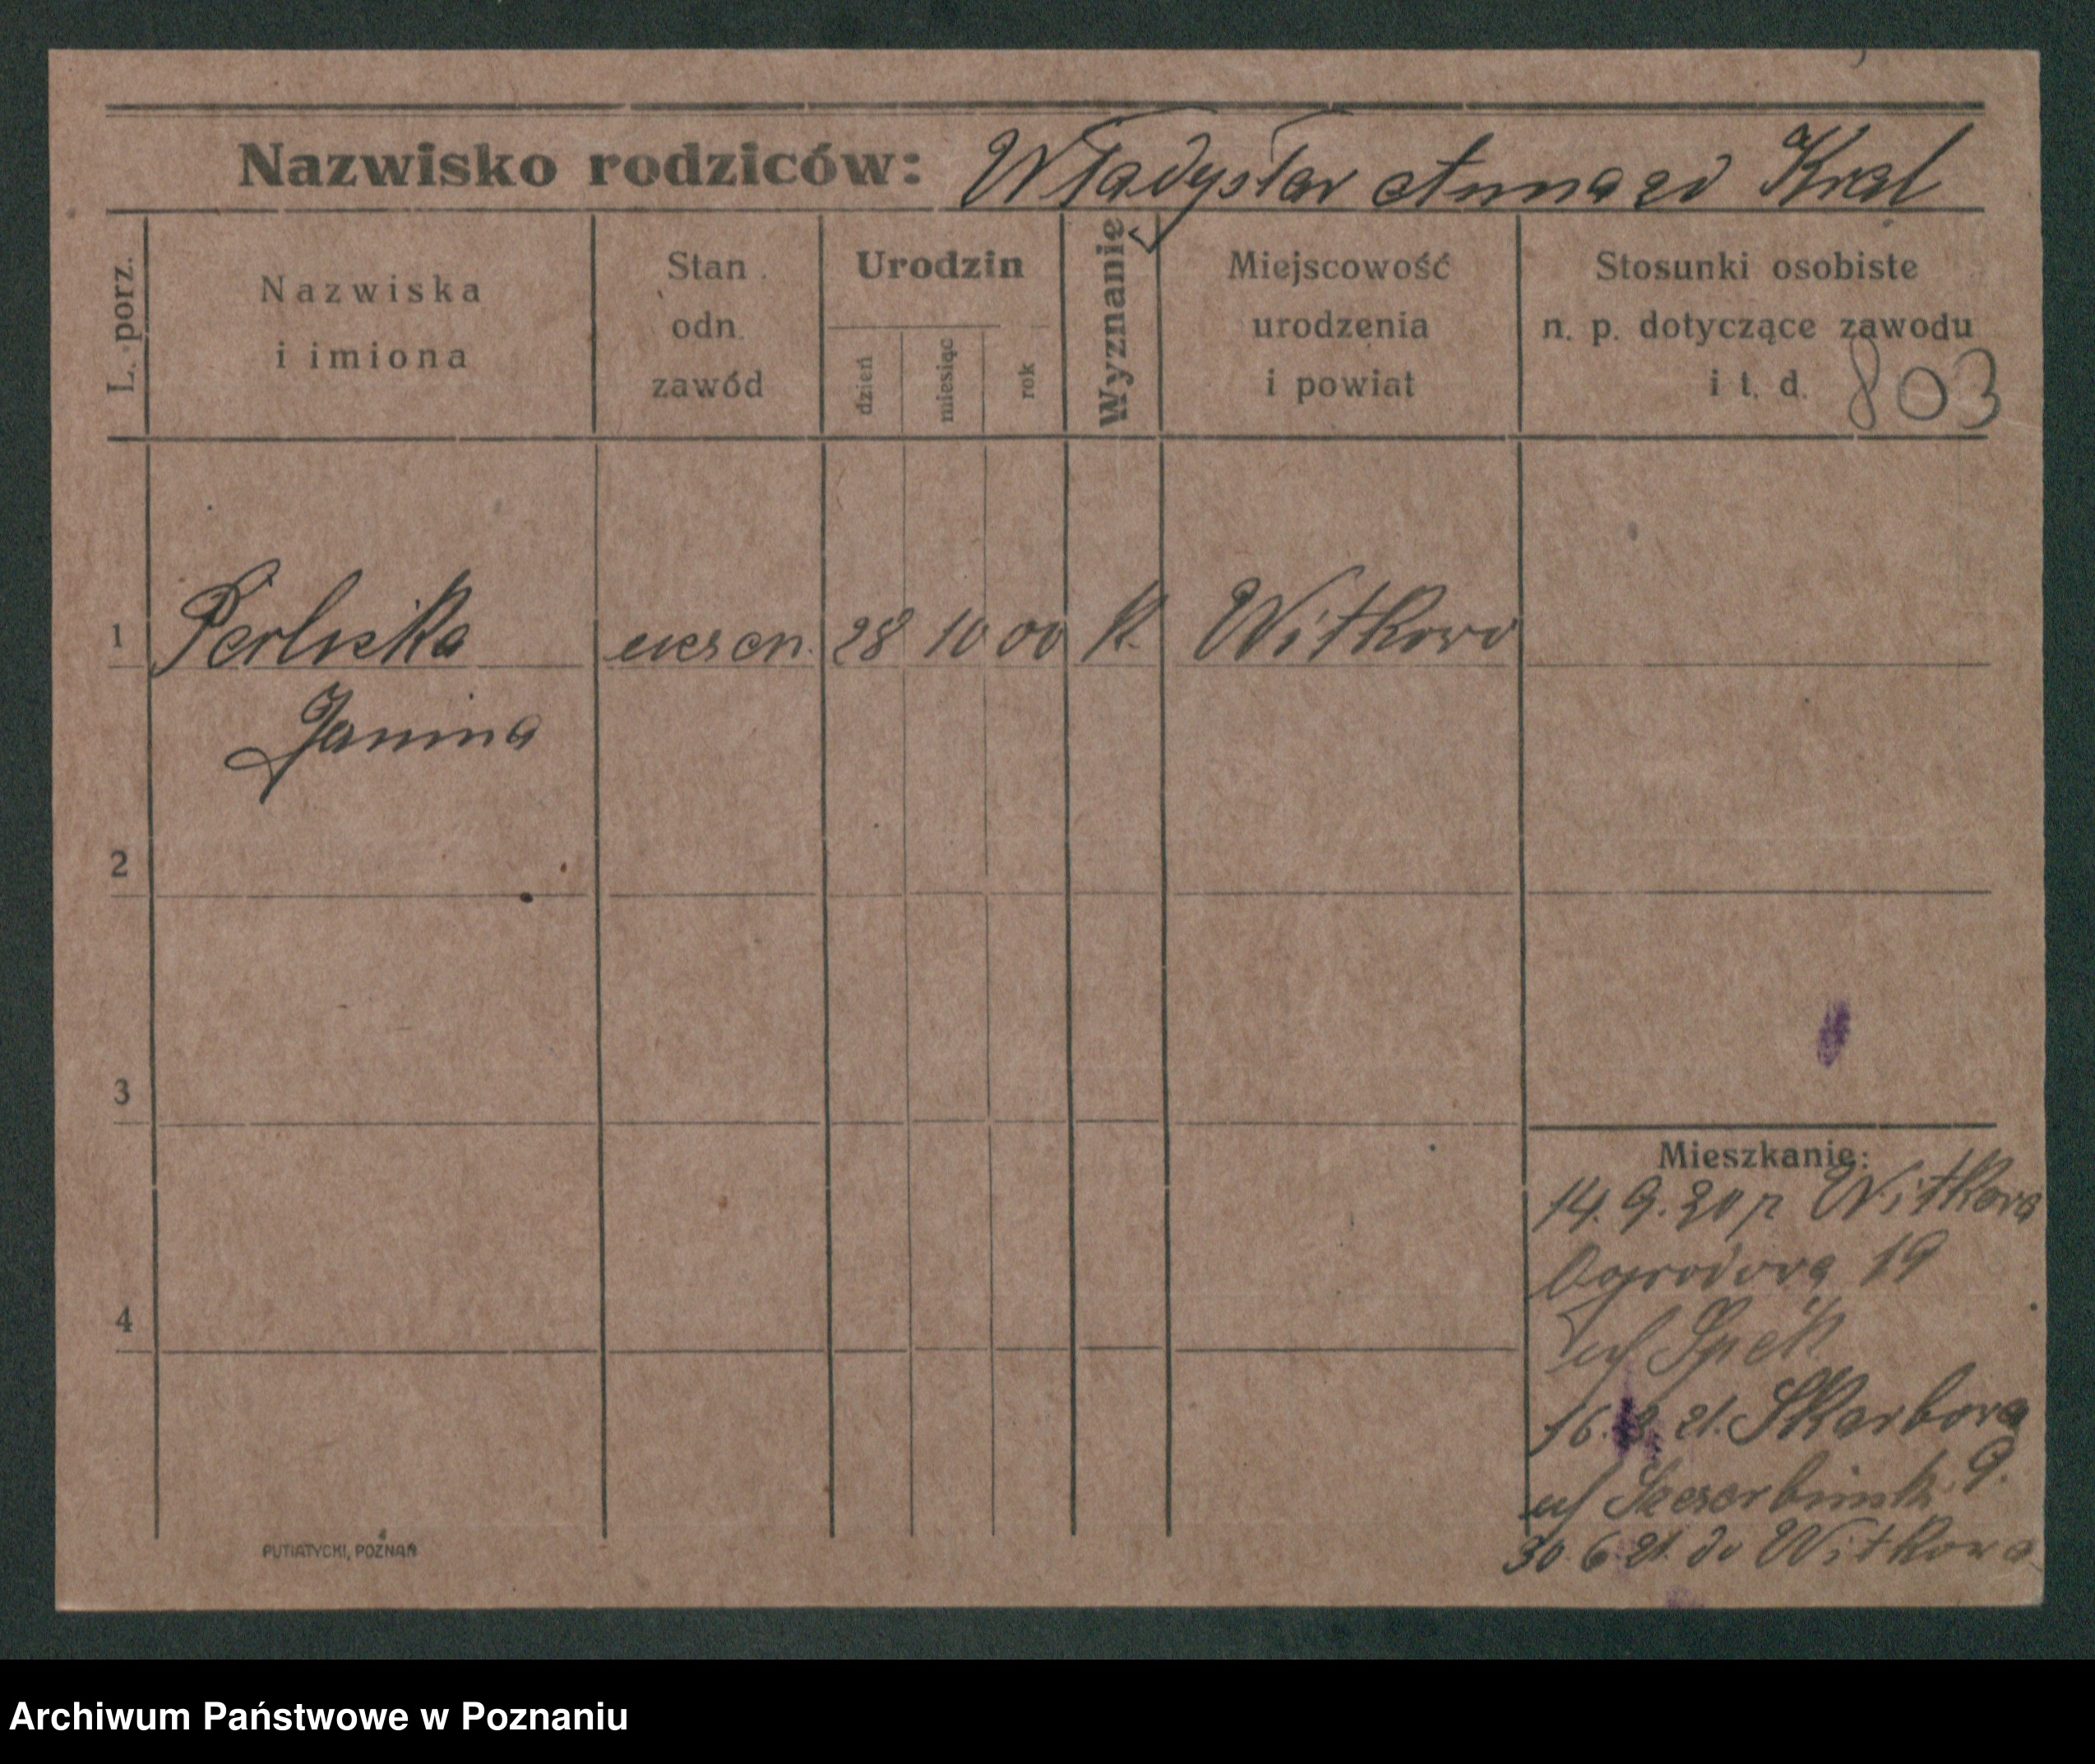 Nazwisko rodziców: Władysław Anna zd Kral
L. porz.
Nazwiska
i imiona
Stan
odn.
zawód
Urodzin
dzień
miesiąc
rok
Wyznanie
Miejscowość
urodzenia
i powiat
Stosunki osobiste
n. p. dotyczące zawodu
i t. d. 803
1 Perlicka uczen. 28 10 00 k. Witkowo
Janina
2
3
4
Mieszkanie:
14. 9. 20 z Witkowa
Ogrodowa 19
Spek
16. 21. Skarbowa
9.
30. 6 21. do Witkowa
PUTIATYCKI, POZNAŃ
Archiwum Państwowe w Poznaniu